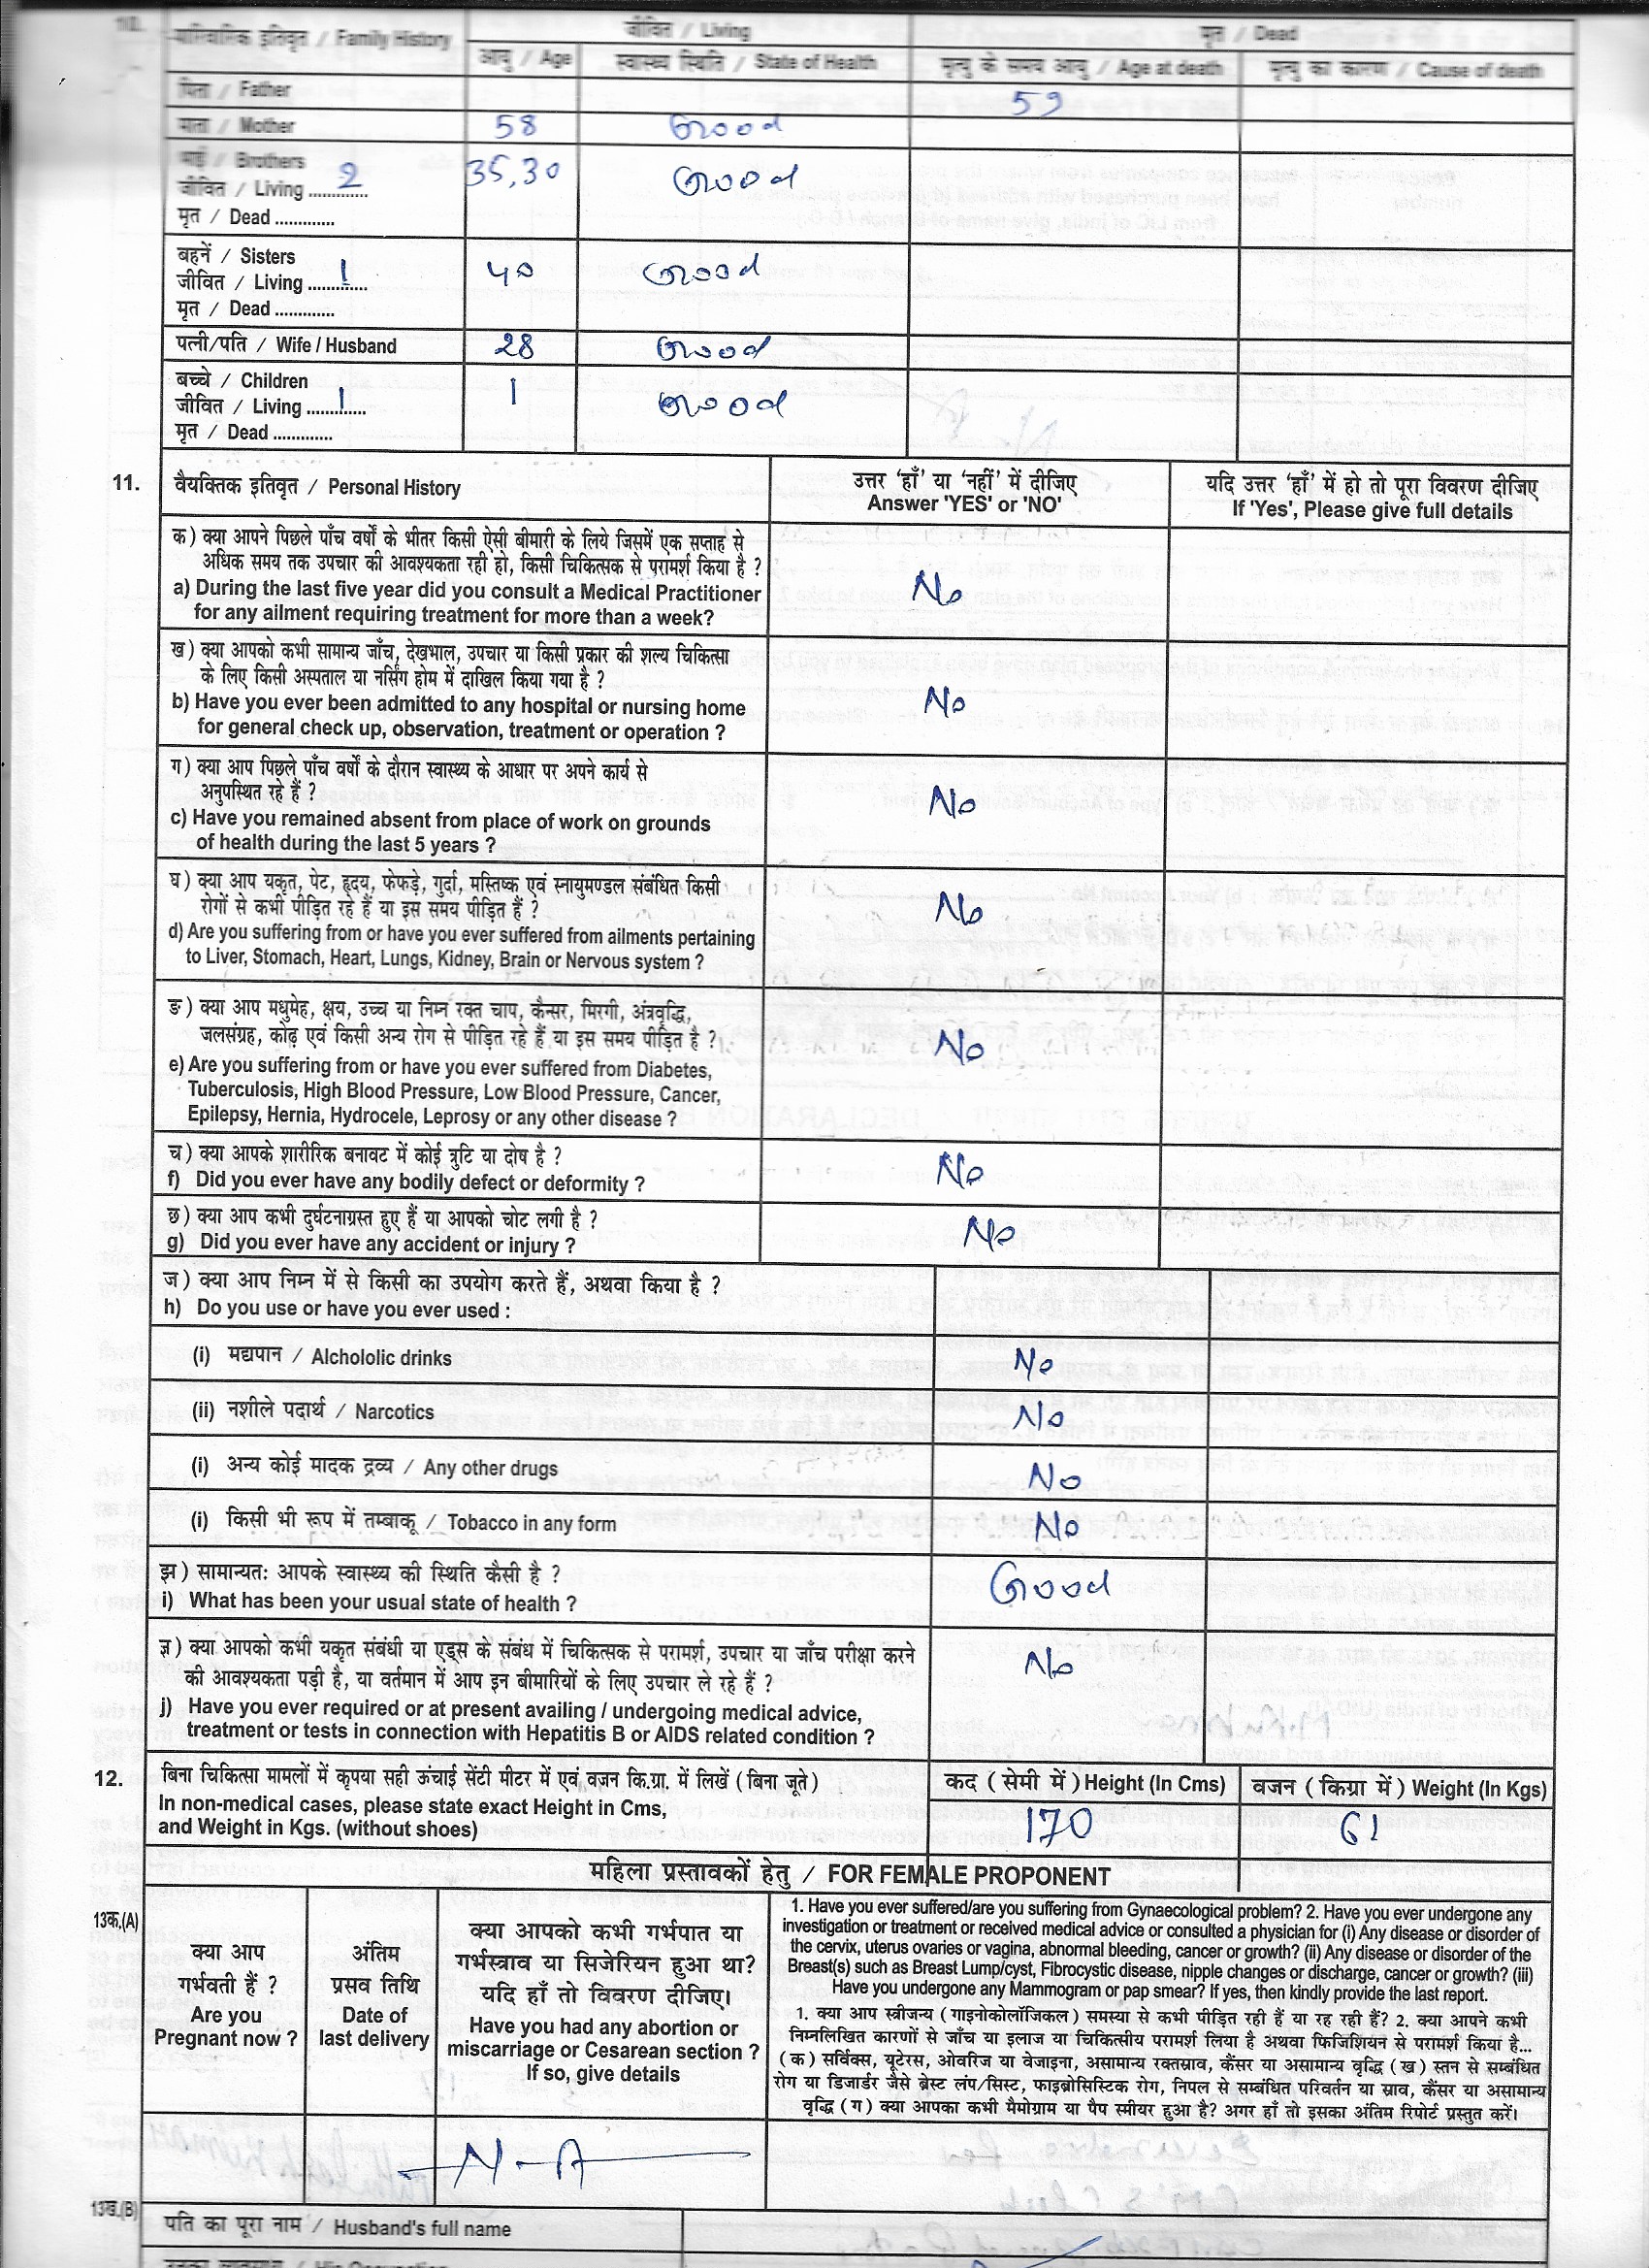 10. पारिवारिक इतिवृत / Family History
जीवित / Living
मृत / Dead
आयु / Age
स्वास्थ्य स्थिति / State of Health
मृत्यु के समय आयु / Age at death
मृत्यु का कारण / Cause of death
पिता / Father 59
माता / Mother 58 Good
भाई / Brothers
जीवित / Living ....2.... 35,30 Good
मृत / Dead .............
बहनें / Sisters
जीवित / Living ....1.... 40 Good
मृत / Dead .............
पत्नी/पति / Wife / Husband 28 Good
बच्चे / Children
जीवित / Living ....1.... 1 Good
मृत / Dead .............
11. वैयक्तिक इतिवृत / Personal History
उत्तर ‘हाँ’ या ‘नहीं’ में दीजिए
Answer 'YES' or 'NO'
यदि उत्तर ‘हाँ’ में हो तो पूरा विवरण दीजिए
If 'Yes', Please give full details
क) क्या आपने पिछले पाँच वर्षों के भीतर किसी ऐसी बीमारी के लिये जिसमें एक सप्ताह से
अधिक समय तक उपचार की आवश्यकता रही हो, किसी चिकित्सक से परामर्श किया है ?
a) During the last five year did you consult a Medical Practitioner
for any ailment requiring treatment for more than a week?
No
ख) क्या आपको कभी सामान्य जाँच, देखभाल, उपचार या किसी प्रकार की शल्य चिकित्सा
के लिए किसी अस्पताल या नर्सिंग होम में दाखिल किया गया है ?
b) Have you ever been admitted to any hospital or nursing home
for general check up, observation, treatment or operation ?
No
ग) क्या आप पिछले पाँच वर्षों के दौरान स्वास्थ्य के आधार पर अपने कार्य से
अनुपस्थित रहे हैं ?
c) Have you remained absent from place of work on grounds
of health during the last 5 years ?
No
घ) क्या आप यकृत, पेट, हृदय, फेफड़े, गुर्दा, मस्तिष्क एवं स्नायुमण्डल संबंधित किसी
रोगों से कभी पीड़ित रहे हैं या इस समय पीड़ित हैं ?
d) Are you suffering from or have you ever suffered from ailments pertaining
to Liver, Stomach, Heart, Lungs, Kidney, Brain or Nervous system ?
No
ङ) क्या आप मधुमेह, क्षय, उच्च या निम्न रक्त चाप, कैन्सर, मिरगी, अंत्रवृद्धि,
जलसंग्रह, कोढ़ एवं किसी अन्य रोग से पीड़ित रहे हैं या इस समय पीड़ित है ?
e) Are you suffering from or have you ever suffered from Diabetes,
Tuberculosis, High Blood Pressure, Low Blood Pressure, Cancer,
Epilepsy, Hernia, Hydrocele, Leprosy or any other disease ?
No
च) क्या आपके शारीरिक बनावट में कोई त्रुटि या दोष है ?
f) Did you ever have any bodily defect or deformity ?
No
छ) क्या आप कभी दुर्घटनाग्रस्त हुए हैं या आपको चोट लगी है ?
g) Did you ever have any accident or injury ?
No
ज) क्या आप निम्न में से किसी का उपयोग करते हैं, अथवा किया है ?
h) Do you use or have you ever used :
(i) मद्यपान / Alchololic drinks No
(ii) नशीले पदार्थ / Narcotics No
(i) अन्य कोई मादक द्रव्य / Any other drugs No
(i) किसी भी रूप में तम्बाकू / Tobacco in any form No
झ) सामान्यतः आपके स्वास्थ्य की स्थिति कैसी है ?
i) What has been your usual state of health ?
Good
ज्ञ) क्या आपको कभी यकृत संबंधी या एड्स के संबंध में चिकित्सक से परामर्श, उपचार या जाँच परीक्षा करने
की आवश्यकता पड़ी है, या वर्तमान में आप इन बीमारियों के लिए उपचार ले रहे हैं ?
j) Have you ever required or at present availing / undergoing medical advice,
treatment or tests in connection with Hepatitis B or AIDS related condition ?
No
12. बिना चिकित्सा मामलों में कृपया सही ऊंचाई सेंटी मीटर में एवं वजन कि.ग्रा. में लिखें (बिना जूते)
In non-medical cases, please state exact Height in Cms,
and Weight in Kgs. (without shoes)
कद ( सेमी में ) Height (In Cms)
वजन ( किग्रा में ) Weight (In Kgs)
170
61
महिला प्रस्तावकों हेतु / FOR FEMALE PROPONENT
13क.(A)
क्या आप
गर्भवती हैं ?
Are you
Pregnant now ?
अंतिम
प्रसव तिथि
Date of
last delivery
क्या आपको कभी गर्भपात या
गर्भस्त्राव या सिजेरियन हुआ था?
यदि हाँ तो विवरण दीजिए।
Have you had any abortion or
miscarriage or Cesarean section ?
If so, give details
1. Have you ever suffered/are you suffering from Gynaecological problem? 2. Have you ever undergone any
investigation or treatment or received medical advice or consulted a physician for (i) Any disease or disorder of
the cervix, uterus ovaries or vagina, abnormal bleeding, cancer or growth? (ii) Any disease or disorder of the
Breast(s) such as Breast Lump/cyst, Fibrocystic disease, nipple changes or discharge, cancer or growth? (iii)
Have you undergone any Mammogram or pap smear? If yes, then kindly provide the last report.
1. क्या आप स्त्रीजन्य ( गाइनोकोलॉजिकल ) समस्या से कभी पीड़ित रही हैं या रह रही हैं? 2. क्या आपने कभी
निम्नलिखित कारणों से जाँच या इलाज या चिकित्सीय परामर्श लिया है अथवा फिजिशियन से परामर्श किया है...
( क ) सर्विक्स, यूटेरस, ओवरिज या वेजाइना, असामान्य रक्तस्राव, कैंसर या असामान्य वृद्धि ( ख ) स्तन से सम्बंधित
रोग या डिजार्डर जैसे ब्रेस्ट लंप/सिस्ट, फाइब्रोसिस्टिक रोग, निपल से सम्बंधित परिवर्तन या स्राव, कैंसर या असामान्य
वृद्धि ( ग ) क्या आपका कभी मैमोग्राम या पैप स्मीयर हुआ है? अगर हाँ तो इसका अंतिम रिपोर्ट प्रस्तुत करें।
N-A
13ख.(B)
पति का पूरा नाम / Husband's full name